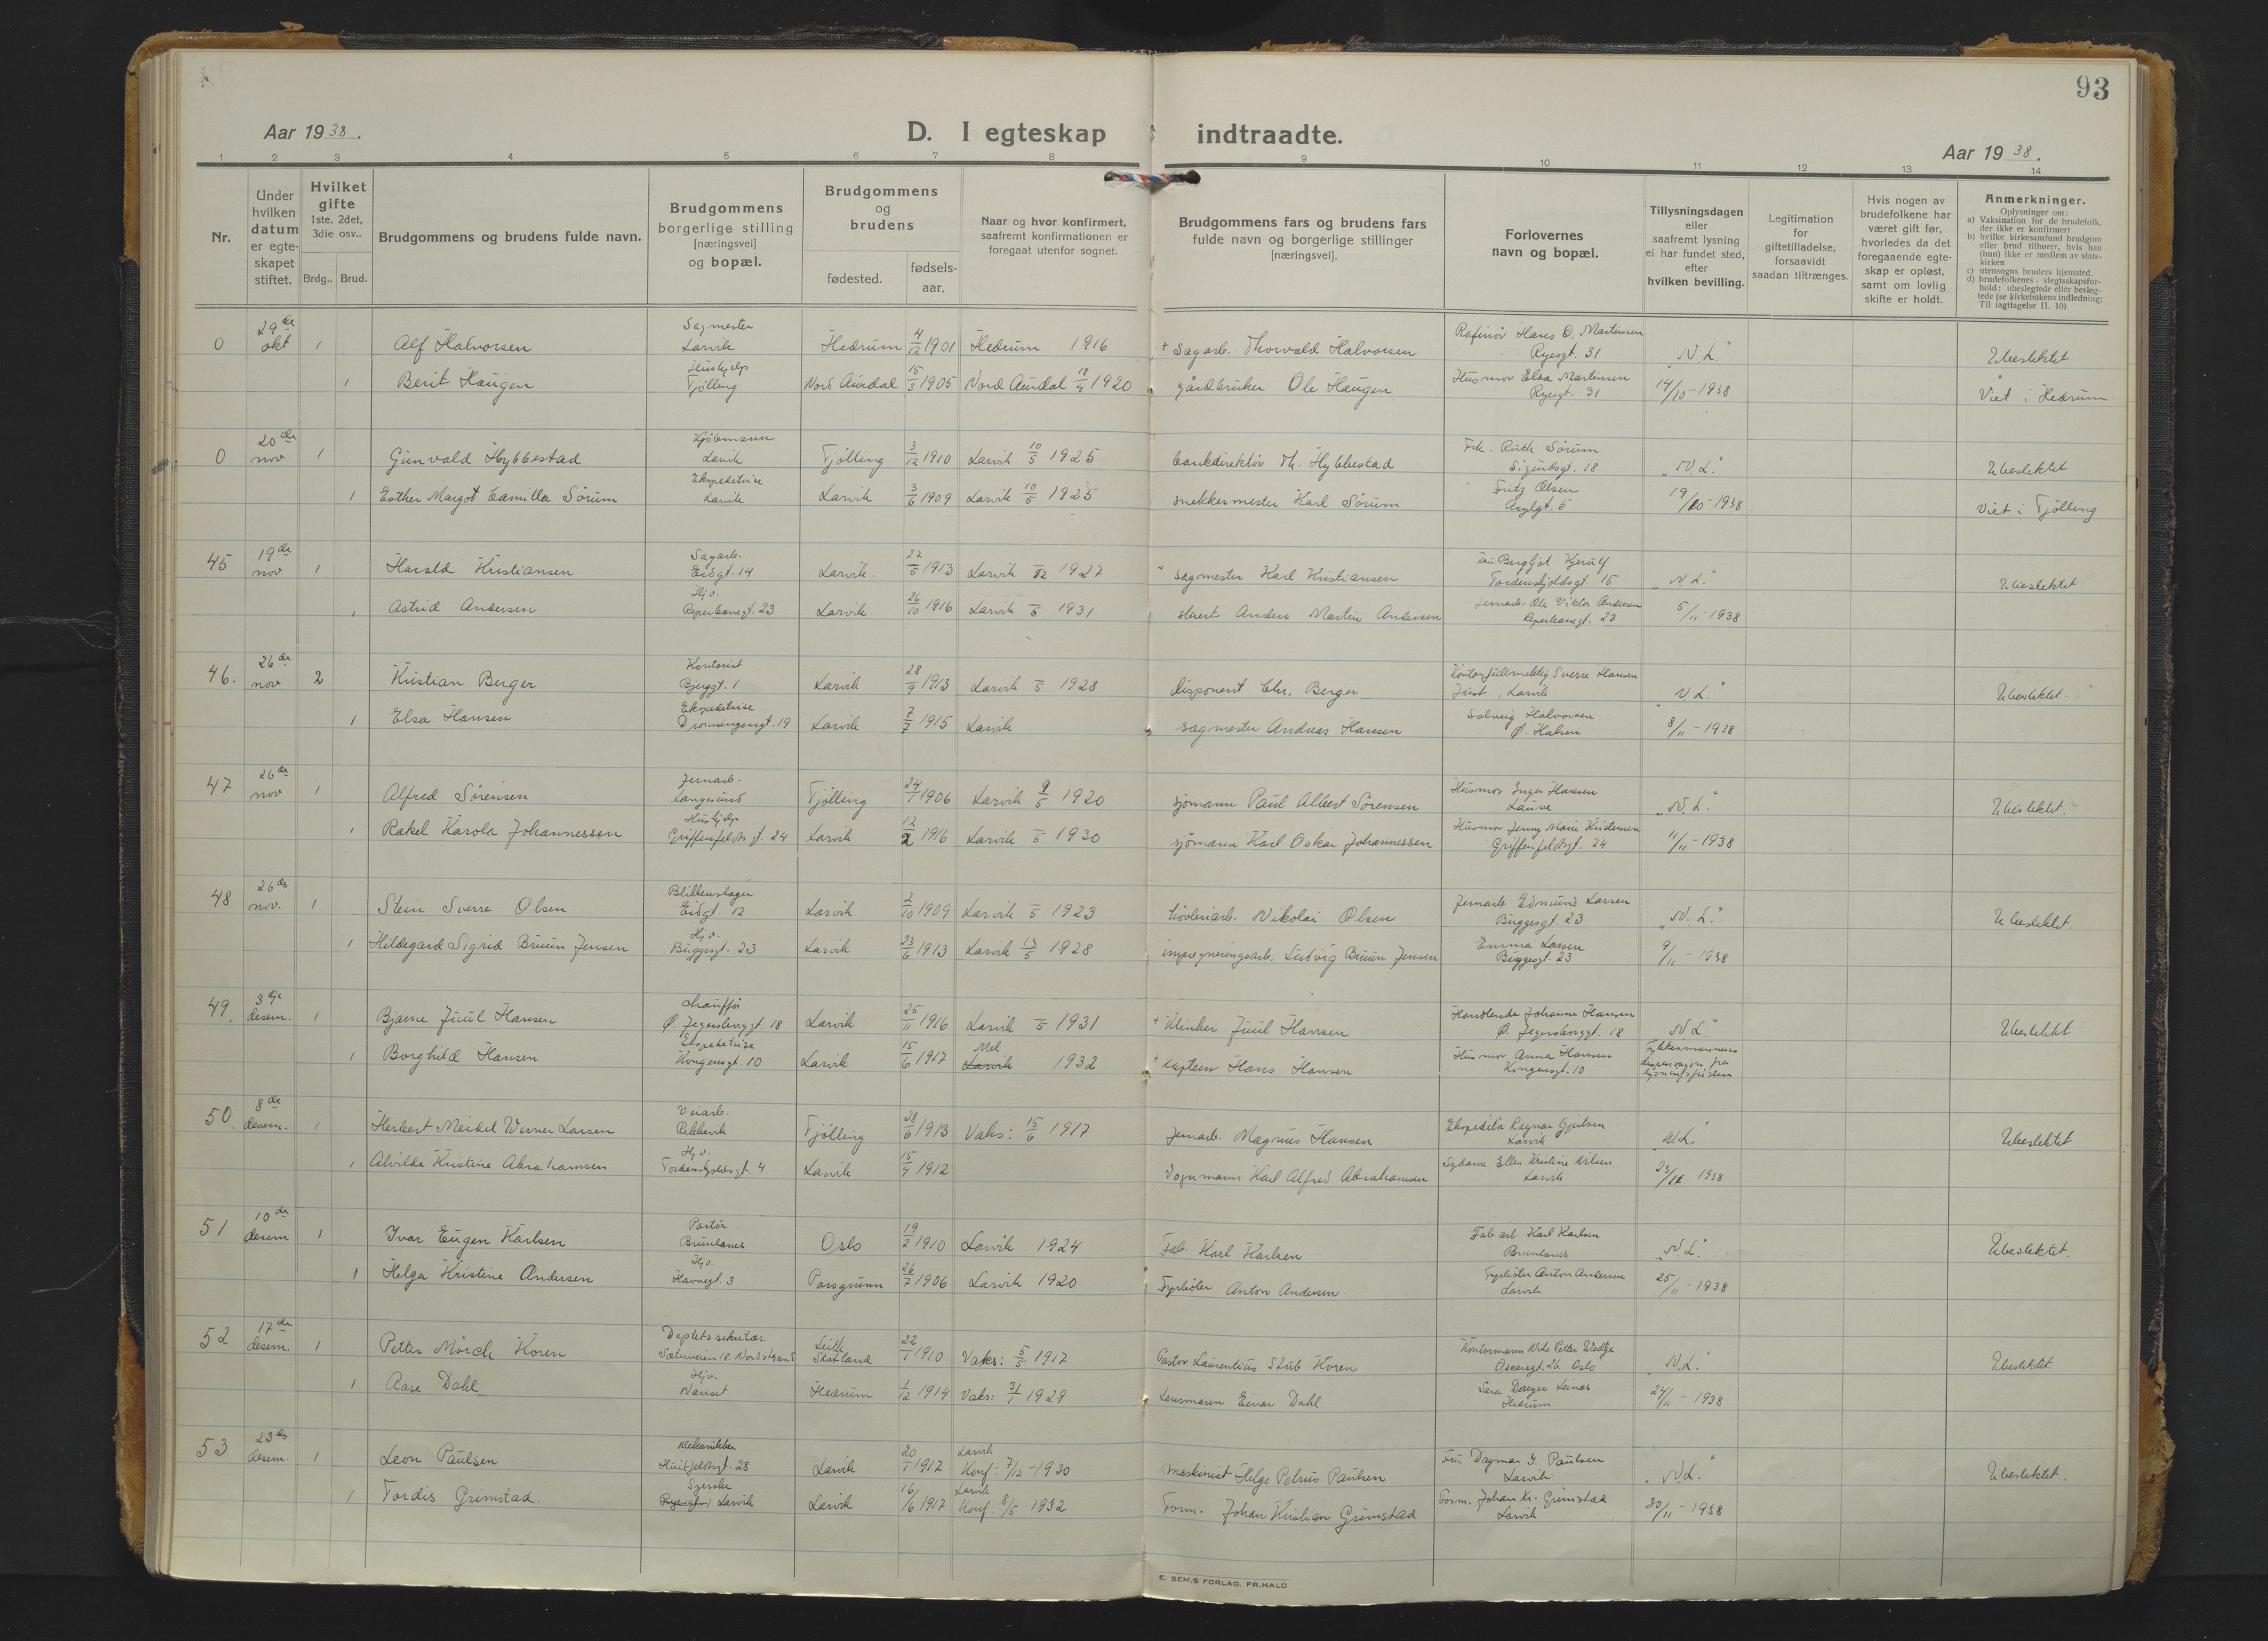 93
Aar 1938.
D. I egteskap indtraadte.
Aar 1938.
1 2 3 4 5 6 7 8 9 10 11 12 13 14
Nr.
Under
hvilken
datum
er egte-
skapet
stiftet.
Hvilket
gifte
1ste, 2det,
3die osv..
Brdg.. Brud.
Brudgommens og brudens fulde navn.
Brudgommens
borgerlige stilling
[næringsvei]
og bopæl.
Brudgommens
og
brudens
fødested.
fødsels-
aar.
Naar og hvor konfirmert,
saafremt konfirmationen er
foregaat utenfor sognet.
Brudgommens fars og brudens fars
fulde navn og borgerlige stillinger
[næringsvei].
Forlovernes
navn og bopæl.
Tillysningsdagen
eller
saafremt lysning
ei har fundet sted,
efter
hvilken bevilling.
Legitimation
for
giftetilladelse,
forsaavidt
saadan tiltrænges.
Hvis nogen av
brudefolkene har
været gift før,
hvorledes da det
foregaaende egte-
skap er opløst,
samt om lovlig
skifte er holdt.
Anmerkninger.
Oplysninger om:
a) Vaksination for de brudefolk,
der ikke er konfirmert
b) hvilke kirkesamfund brudgom
eller brud tilhører, hvis han
(hun) ikke er medlem av stats-
kirken
c) utensogns bruders hjemsted.
d) brudefolkenes slegtsskapsfor-
hold: ubeslegtede eller besleg-
tede (se kirkebokens indledning:
Til iagttagelse II. 10)
29de Sagmester Rafinør Hans O. Martinsen
0 okt 1 Alf Halvorsen Larvik Hedrum 4/12 1901 Hedrum 1916 + Sagarb. Thorvald Halvorsen Ryesgt. 31 "N.L." Ubeslektet
Hushjelp Husmor Elsa Martinsen
1 Berit Haugen Tjølling Nord Aurdal 15/3 1905 Nord Aurdal 18/4 1920 gårdbruker Ole Haugen Ryesgt. 31 14/10-1938 Viet i Hedrum.
20de Kjøbmann Frk. Ruth Sørum
0 nov 1 Gunvald Hybbestad Larvik Tjølling 3/12 1910 Larvik 10/5 1925 bankdirektør Th. Hybbestad Sigurdsgt. 18 "N.L." Ubeslektet
Ekspeditrise Fritz Olsen
1 Esther Margot Camilla Sørum Larvik Larvik 3/6 1909 Larvik 10/5 1925 snekkermester Karl Sørum Asylgt. 5 19/10-1938 Viet i Tjølling
19de Sagarb. Fru Bergljot Kjerulf
45 nov 1 Harald Kristiansen Eidgt. 14 Larvik. 22/5 1913 Larvik 1927 sagmester Karl Kristiansen Tordenskjoldsgt. 15 "N.L." Ubeslektet
Hjv. Jernarb. Ole Viktor Andersen
1 Astrid Andersen Reperbanegt. 23 Larvik 26/10 1916 Larvik 5 1931 stuert Anders Martin Andersen Reperbanegt. 23 5/11-1938
26de Kontorist Kontorfullmektig Sverre Hansen
46. nov 2 Kristian Berger Bjerggt. 1 Larvik 28/9 1913 Larvik 5 1928 disponent Chr. Berger Larvik "N.L." Ubeslektet.
Ekspeditrise Solveig Halvorsen
1 Elsa Hansen Dronningensgt. 19 Larvik 7/7 1915 Larvik sagmester Andreas Hansen Ø. Halsen 8/11-1938
26de Jernarb. Husmor Inger Hansen
47 nov 1 Alfred Sørensen Langesund Tjølling 24/1 1906 Larvik 9/5 1920 sjømann Paul Albert Sørensen Lauve "N.L." Ubeslektet.
Hushjelp Husmor Jenny Marie Kristensen
1 Rakel Karola Johannessen Griffenfeldts gt. 24 Larvik 12/2 1916 Larvik 5 1930 sjømann Karl Oskar Johannessen Griffenfeldsgt. 24 11/11-1938
26de Blikkenslager Jernarb Edmund Larsen
48 nov. 1 Stein Sverre Olsen Eidgt. 12 Larvik 2/10 1909 Larvik 5 1923 høvleriarb. Nikolai Olsen Buggesgt. 23 "N.L." Ubeslektet
Hjv. Emma Larsen
1 Hildegard Sigrid Bruun Jensen Buggesgt. 23 Larvik 23/6 1913 Larvik 13/5 1928 impregneringsarb. Ludvig Bruun Jensen Buggesgt. 23 9/11-1938
3dje chauffør Handlende Johanne Hansen
49. desem. 1 Bjarne Juul Hansen Ø. Jegersborggt. 18 Larvik 25/11 1916 Larvik 5 1931 + Klinker Juul Hansen Ø. Jegersborggt. 18 "N.L" Ubeslektet
Ekspeditrise Mel Husmor Anna Hansen Fylkesmannens
1 Borghild Hansen Kongensgt. 10 Larvik 15/6 1917 Larvik 1932 + Kaptein Hans Hansen Kongensgt. 10 dispensasjon fra
lysningsfristen
8de Veiarb. Ekspeditør Ragnar Gjertsen
50. desem. 1 Herbert Meidel Werner Larsen Rekkevik Tjølling 28/6 1913 Vaks: 15/6 1917 Jernarb. Magnus Hansen Larvik "N.L." Ubeslektet
Hjv. Sydame Ellen Kristine Nilsen
1 Alvilde Kristine Abrahamsen Tordenskjoldsgt. 4 Larvik 15/9 1912 Vognmann Karl Alfred Abrahamsen Larvik 23/11 1938
10de Portør Fab arb. Karl Karlsen
51 desem 1 Ivar Eugen Karlsen Brunlanes Oslo 19/2 1910 Larvik 1924 Fab. Karl Karlsen Brunlanes "N.L." Ubeslektet.
Hjv. Fyrbøter Anton Andersen
1 Helga Kristine Andersen Havnegt. 3 Porsgrunn 26/7 1906 Larvik 1920 Fyrbøter Anton Andersen Larvik 25/11-1938
17de Deptets sekretær Leith Kontormann Nils Petter
52 desem. 1 Petter Mørch Koren Sæterveien 18. Nordstrand Skotland 22/1 1910 Vaks: 5/5 1917 Pastor Laurentius Stub Koren Oscarsgt. 26. Oslo "N.L." Ubeslektet.
Hjv. Sara Leinæs
1 Aase Dahl Nanset Hedrum 1/12 1914 Vaks: 31/7 1929 Lensmann Einar Dahl Hedrum 24/11-1938
23de Mekanikker Larvik Fru Dagmar G. Paulsen
53 desem. 1 Leon Paulsen Huitfeldtsgt. 28 Larvik 20/1 1917 Konf: 7/12-1930 Maskinist Helge Petrus Paulsen Larvik "N.L." Ubeslektet.
Syerske Larvik Form. Johan Kr. Grimstad
1 Tordis Grimstad. Ryesgt. 1 Larvik Larvik 16/6 1917 Konf: 8/5-1932 Form. Johan Kristian Grimstad Larvik 30/11-1938
E. SEM,S FORLAG, FR.HALD